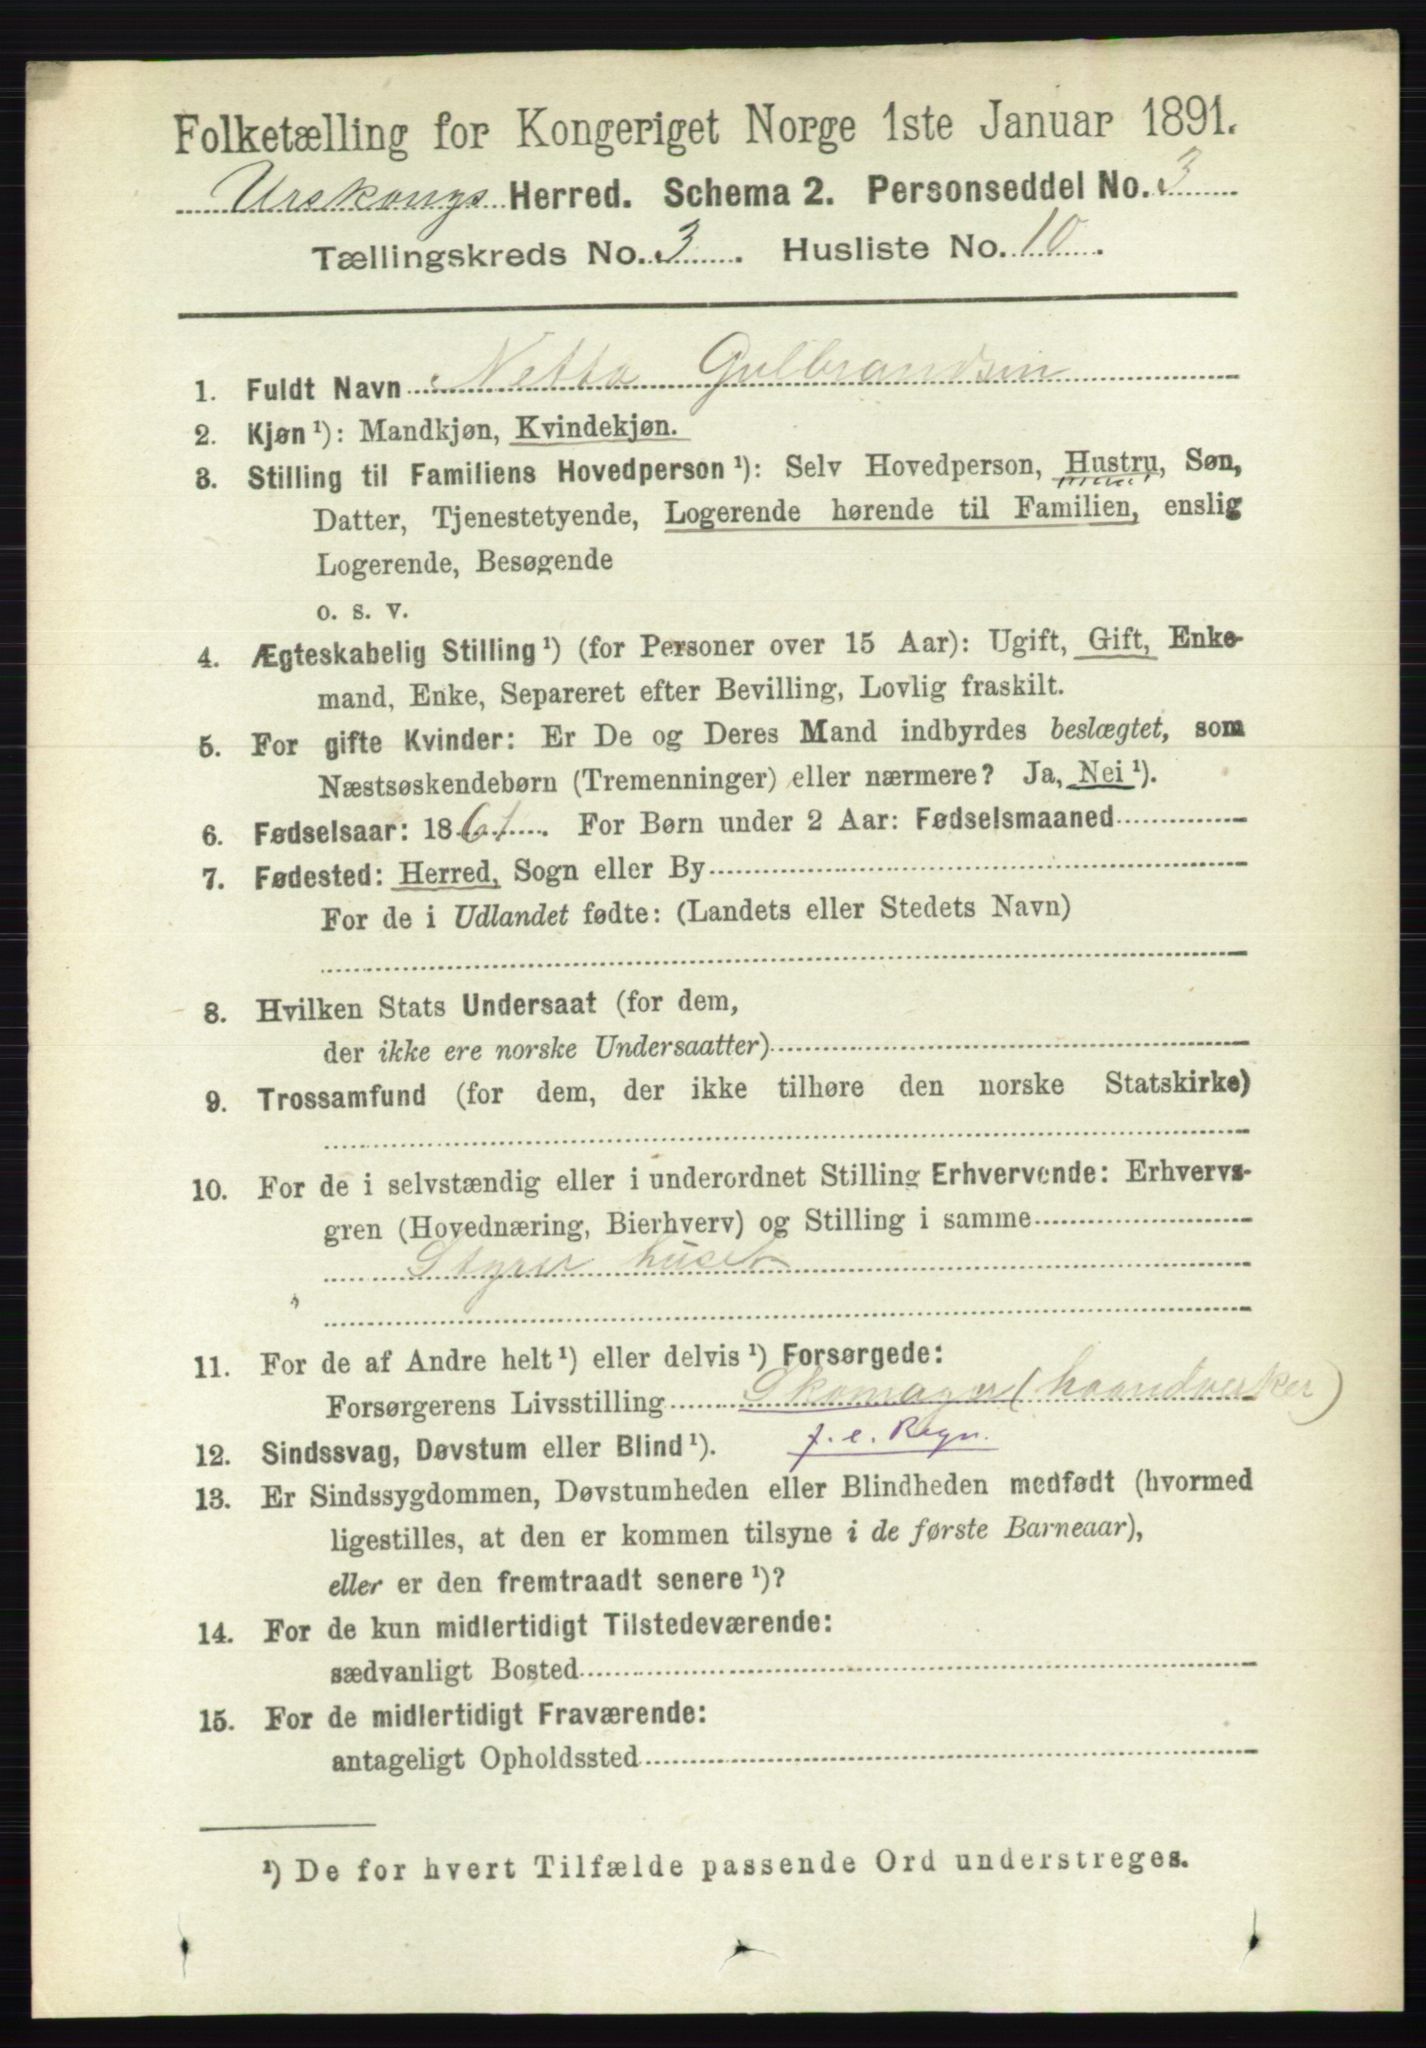 Folketælling for Kongeriget Norge 1ste Januar 1891.
Urskougs Herred. Schema 2. Personseddel No. 3
Tællingskreds No. 3. Husliste No. 10.
1. Fuldt Navn Netta Gulbrandsen
2. Kjøn ¹): Mandkjøn, Kvindekjøn.
3. Stilling til Familiens Hovedperson ¹): Selv Hovedperson, Hustru, Søn,
Datter, Tjenestetyende, Logerende hørende til Familien, enslig
Logerende, Besøgende
o. s. v.
4. Ægteskabelig Stilling ¹) (for Personer over 15 Aar): Ugift, Gift, Enke-
mand, Enke, Separeret efter Bevilling, Lovlig fraskilt.
5. For gifte Kvinder: Er De og Deres Mand indbyrdes beslægtet, som
Næstsøskendebørn (Tremenninger) eller nærmere? Ja, Nei ¹).
6. Fødselsaar: 1861. For Børn under 2 Aar: Fødselsmaaned
7. Fødested: Herred, Sogn eller By
For de i Udlandet fødte: (Landets eller Stedets Navn)
8. Hvilken Stats Undersaat (for dem,
der ikke ere norske Undersaatter)
9. Trossamfund (for dem, der ikke tilhøre den norske Statskirke)
10. For de i selvstændig eller i underordnet Stilling Erhvervende: Erhvervs-
gren (Hovednæring, Bierhverv) og Stilling i samme
Styrer huset
11. For de af Andre helt ¹) eller delvis ¹) Forsørgede:
Forsørgerens Livsstilling Skomager (haandverker)
f. e. Regn.
12. Sindssvag, Døvstum eller Blind ¹).
13. Er Sindssygdommen, Døvstumheden eller Blindheden medfødt (hvormed
ligestilles, at den er kommen tilsyne i de første Barneaar),
eller er den fremtraadt senere ¹)?
14. For de kun midlertidigt Tilstedeværende:
sædvanligt Bosted
15. For de midlertidigt Fraværende:
antageligt Opholdssted
¹) De for hvert Tilfælde passende Ord understreges.